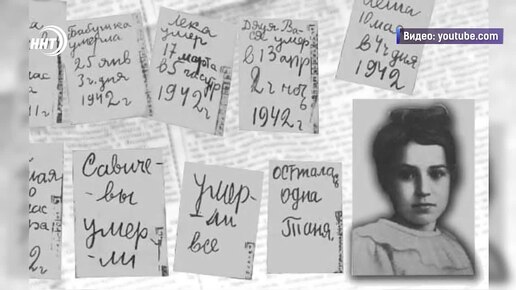 ННТ
Видео: youtube.com
Бабушка
умерла
25 янв
3 ч. дня
1942 г
Лека
умер
17 марта
в 5 часутр
1942 г
Дядя Ва
ся умер
в 13 апр
2 ч ноч
1942 г
10 мая
в 4 ч дня
1942
Савиче-
-вы
умер-
-ли
умер-
ли
все
Осталась
одна
Таня
2 г